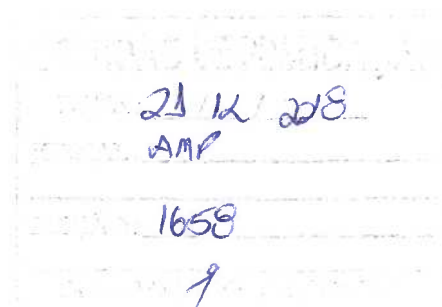 21 12 2018
AMP
1658
1